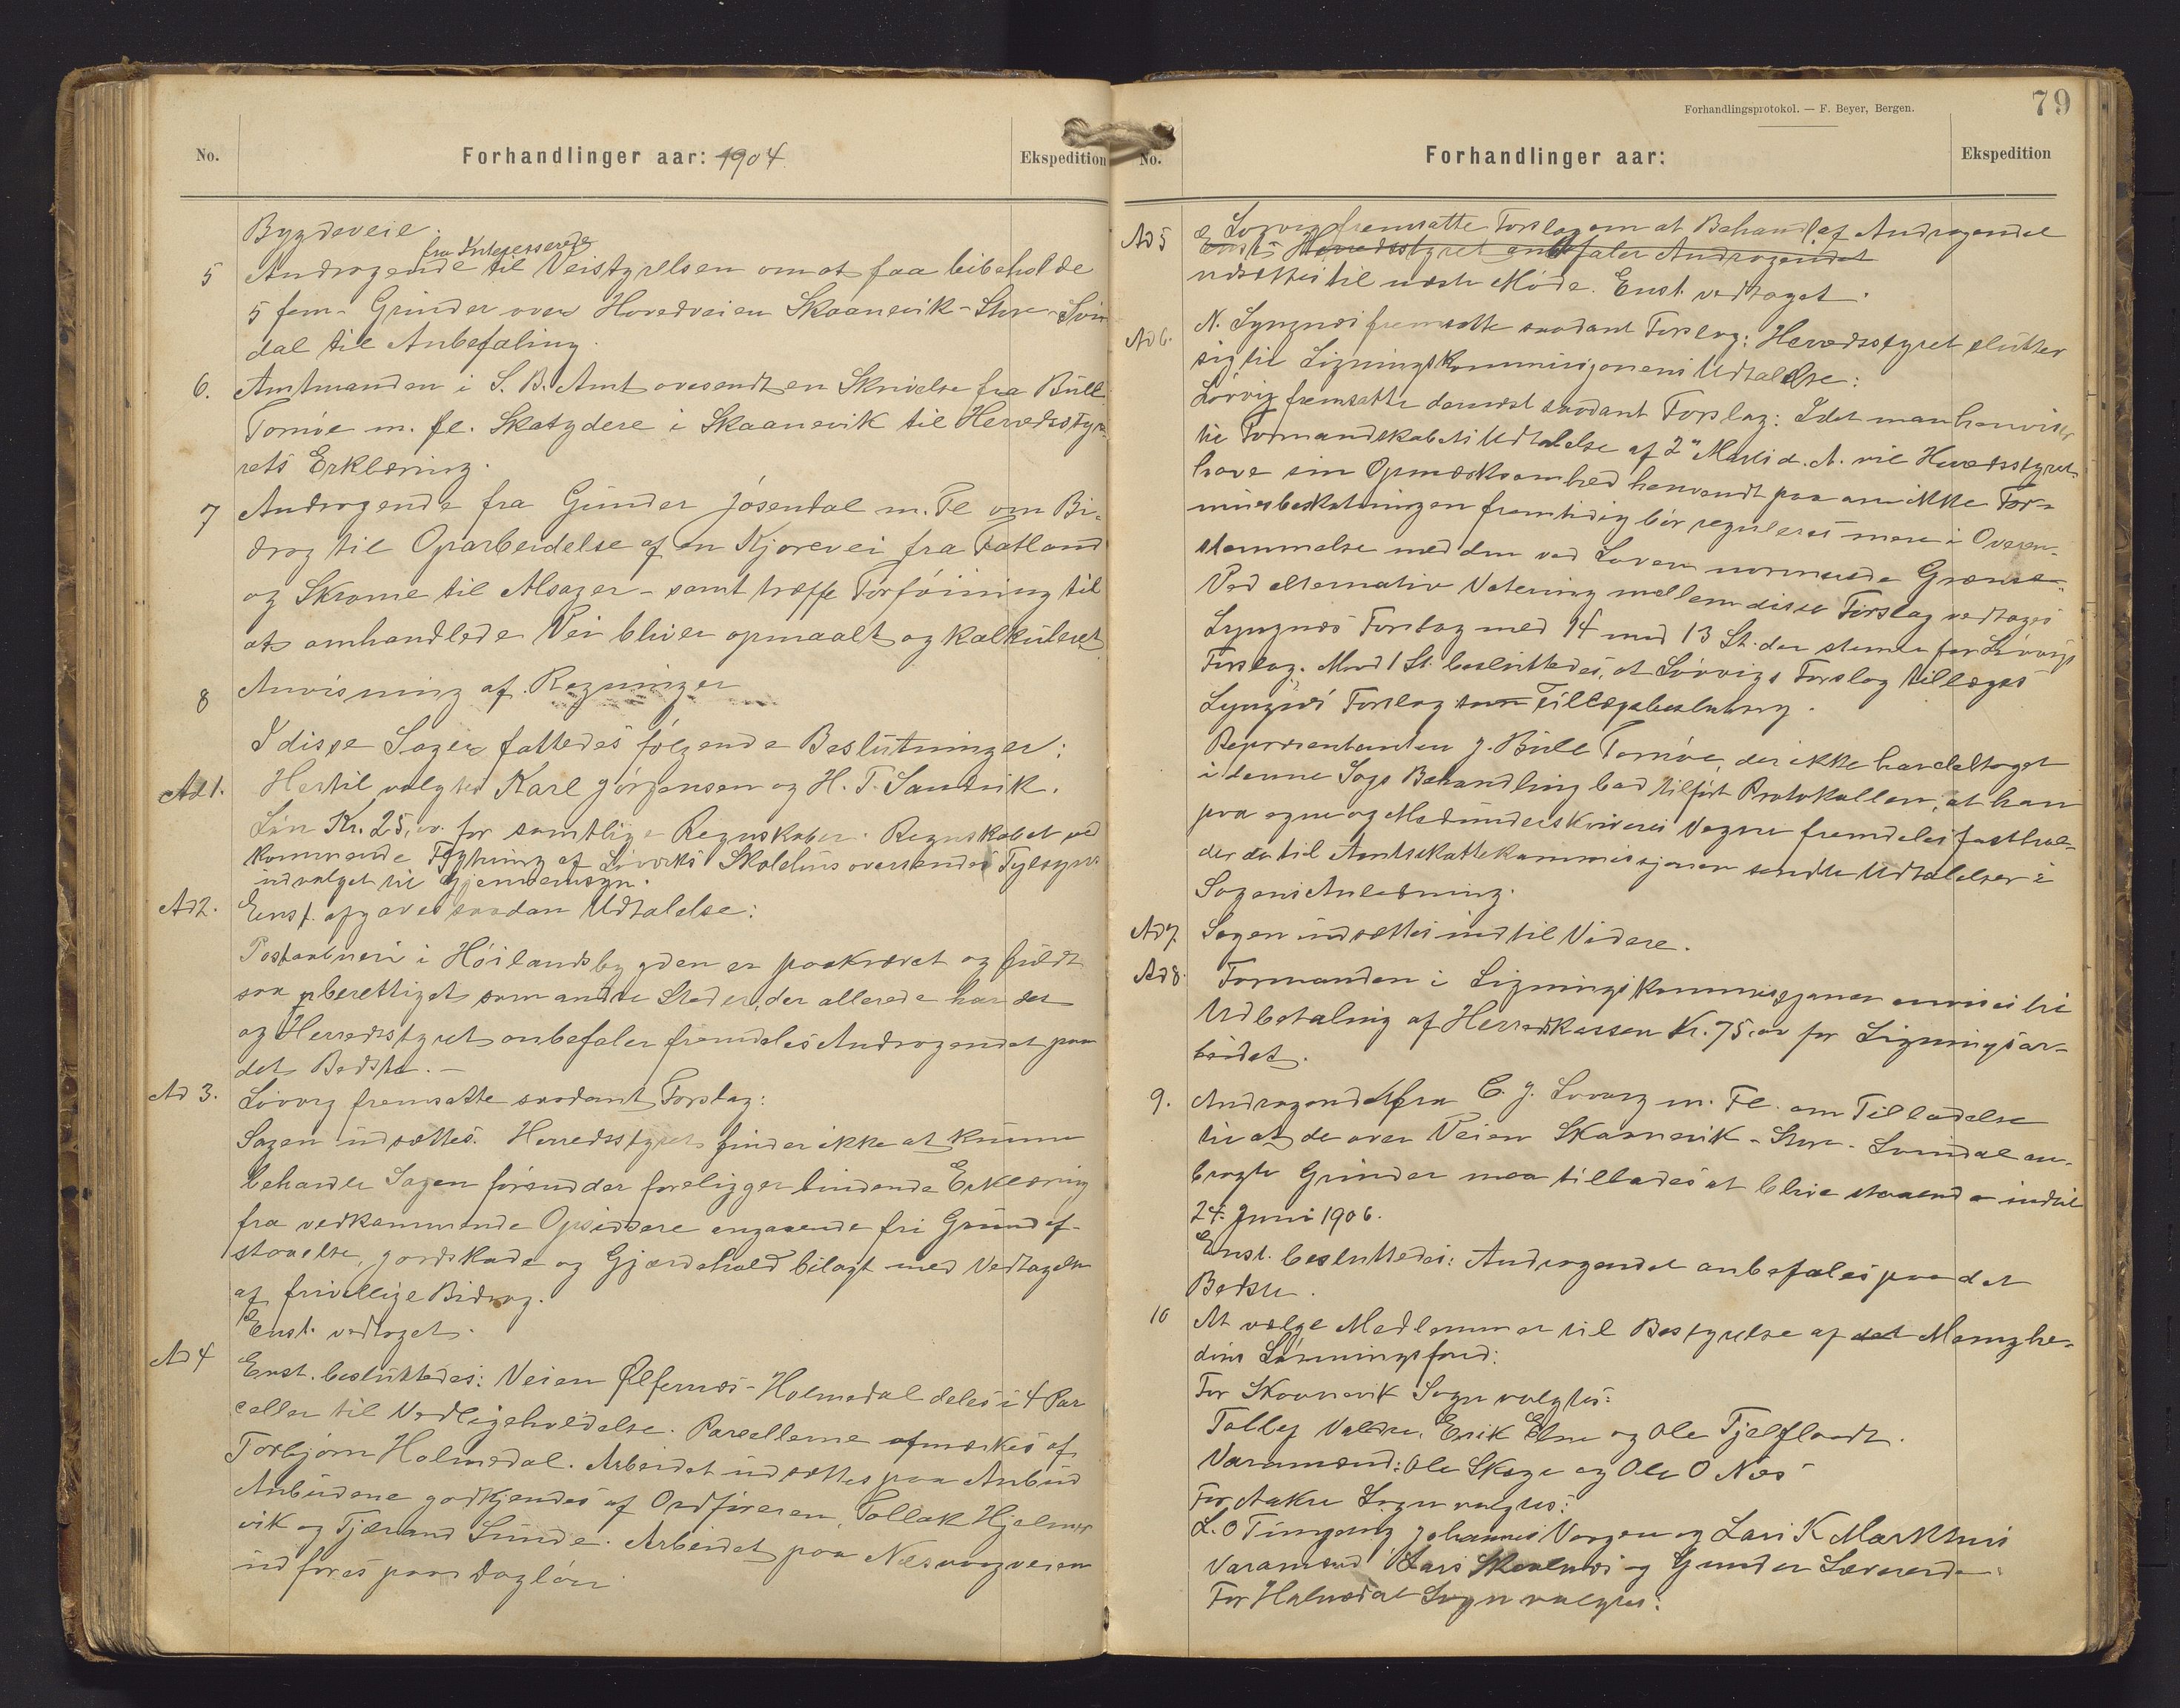 No.
Forhandlinger aar: 1904
Ekspedition
Bygdeveie.
fra Interesserede
5 Andragende til Veistyrelsen om at faa bibeholde
5 fem - Grinder over Hovedveien Skaanevik - Stene - Svin
dal til Anbefaling.
6. Amtmanden i S. B. Amt oversendt en Skrivelse fra Bull
Tornöe m. fl. Skatydere i Skaanevik til Herredssty-
rets Erklæring.
7 Andragende fra Gunder Jósendal m. Fl om Bi-
drag til Oparbeidelse af en Kjörevei fra Fatland
og Skrome til Alsager - samt træffe Forföining til
at omhandlede Vei bliver opmaalt og kalkuleret
8 Anvisning af Regninger
I disse Sager fattedes følgende Beslutninger:
Ad 1. Hertil valgtes Karl Jörgensen og H. T. Sandvik.
Lön Kr. 25,00 for samtlige Regnskaber. Regnskabet ved
kommende Flytning af Skolehus oversendes Tilsyns-
udvalget til Gjennemsyn.
Ad 2. Enst. afgaves saadan Udtalelse:
Postaabneri i Höilandsbygden er paakrævet og fuldt
saa berettiget som andre Steder, der allerede har det
og Herredsstyret anbefaler fremdeles Andragendet paa
det Bedste. -
Ad 3. Lövvig fremsatte saadant Forslag:
Sagen udsættes. Herredsstyret finder ikke at kunne
behandle Sagen förend der foreligger bindende Erklæring
fra vedkommende Opsiddere angaaende fri Grundaf-
staaelse, jordskade og Gjærdehold bilagt med Vedtagelse
af frivillige Bidrag.
Enst. vedtaget.
Ad 4 Enst. besluttedes: Veien Ølfernæs - Holmedal deles i 4 Par
celler til Vedligeholdelse. Parcellerne afmærkes af
Torbjörn Holmedal. Arbeidet udsættes paa Anbud
Anbudene godkjendes af Ordföreren, Tollak Hjelmer
vik og Tjærand Sunde. Arbeidet paa Næsvaagveien
udföres paa Daglön
Forhandlingsprotokol. — F. Beyer, Bergen.
79
No.
Forhandlinger aar:
Ekspedition
Ad 5 Lövvig fremsatte Forslag om at Behandl. af Andragendet
Enst. Herredsstyret anbefaler Andragendet
udsættes til næste Möde. Enst. vedtaget.
Ad 6. N. Lyngnæs fremsatte saadant Forslag: Herredsstyret slutter
sig til Ligningskommissionens Udtalelse:
Lövvig fremsatte dernæst saadant Forslag: Idet man henviser
til Formandskabets Udtalelse af 2den Marts d. A. vil Herredsstyret
have sin Opmærksomhed henvendt paa om ikke For-
muesbeskatningen fremtidig bör reguleres mere i Overen-
stemmelse med den ved Loven normerede Grænse.
Ved alternativ Votering mellem disse Forslag vedtages
Lyngnæs Forslag med 14 mod 13 St. der stemte for Lövvigs
Forslag. Mod 1 St. besluttedes, at Lövvigs Forslag tillægges
Lyngnæs' Forslag som Tillægsbeslutning.
Repræsentanten J. Bull Tornöe, der ikke har deltaget
i denne Sags Behandling bad tilfört Protokollen, at han
paa egne og Medunderskriveres Vegne fremdeles fasthol-
der de til Amtsskattekommissjonen sendte Udtalelser i
Sagens Anledning.
Ad 7. Sagen udsættes indtil Videre.
Ad 8. Formanden i Ligningskommissjonen anvises til
Udbetaling af Herredskassen Kr. 75,00 for Ligningsar-
beidet.
9. Andragende fra C. J. Lövvig m. Fl. om Tilladelse
til at de over Veien Skaanevik - Stene - Svindal an-
bragte Grinder maa tillades at blive staaende indtil
24. Juni 1906.
Enst. besluttedes: Andragendet anbefales paa det
Bedste.
10 At vælge Medlemmer til Bestyrelse af det Menighe-
dens Lönningsfond:
For Skaanevik Sogn valgtes:
Tollef Valdre, Erik Elne og Ole Tjelflaadt.
Varamænd: Ole Skege og Ole O Næs
For Aakre Sogn valgtes:
L. O Tungesvig Johannes Vaagen og Lars K Markhus
Varamænd Lars Skaalnæs og Gunder
For Holmedal Sogn valgtes: